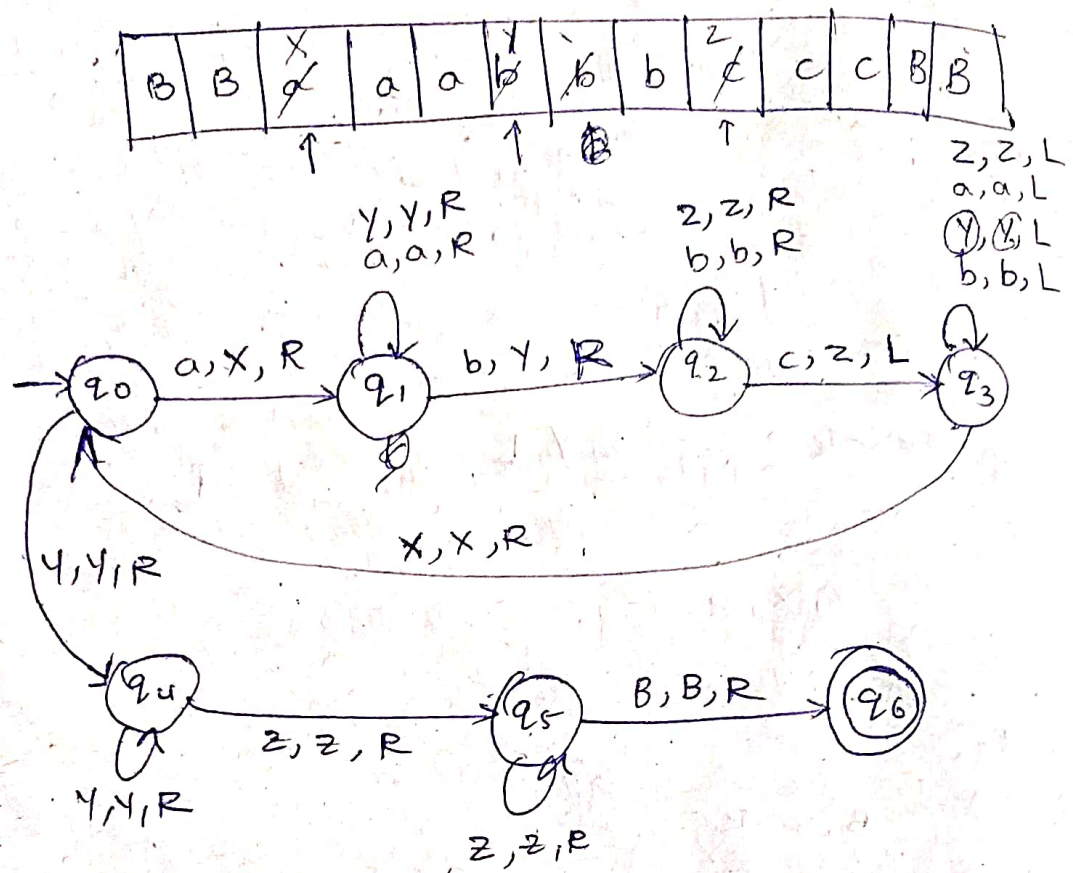 X Y Z
B B a a a b b b c c c B B
Z, Z, L
a, a, L
Y, Y, L
b, b, L
Y, Y, R
a, a, R
Z, Z, R
b, b, R
q0 a, X, R q1 b, Y, R q2 c, Z, L q3
X, X, R
Y, Y, R
q4 Z, Z, R q5 B, B, R q6
Y, Y, R
Z, Z, R